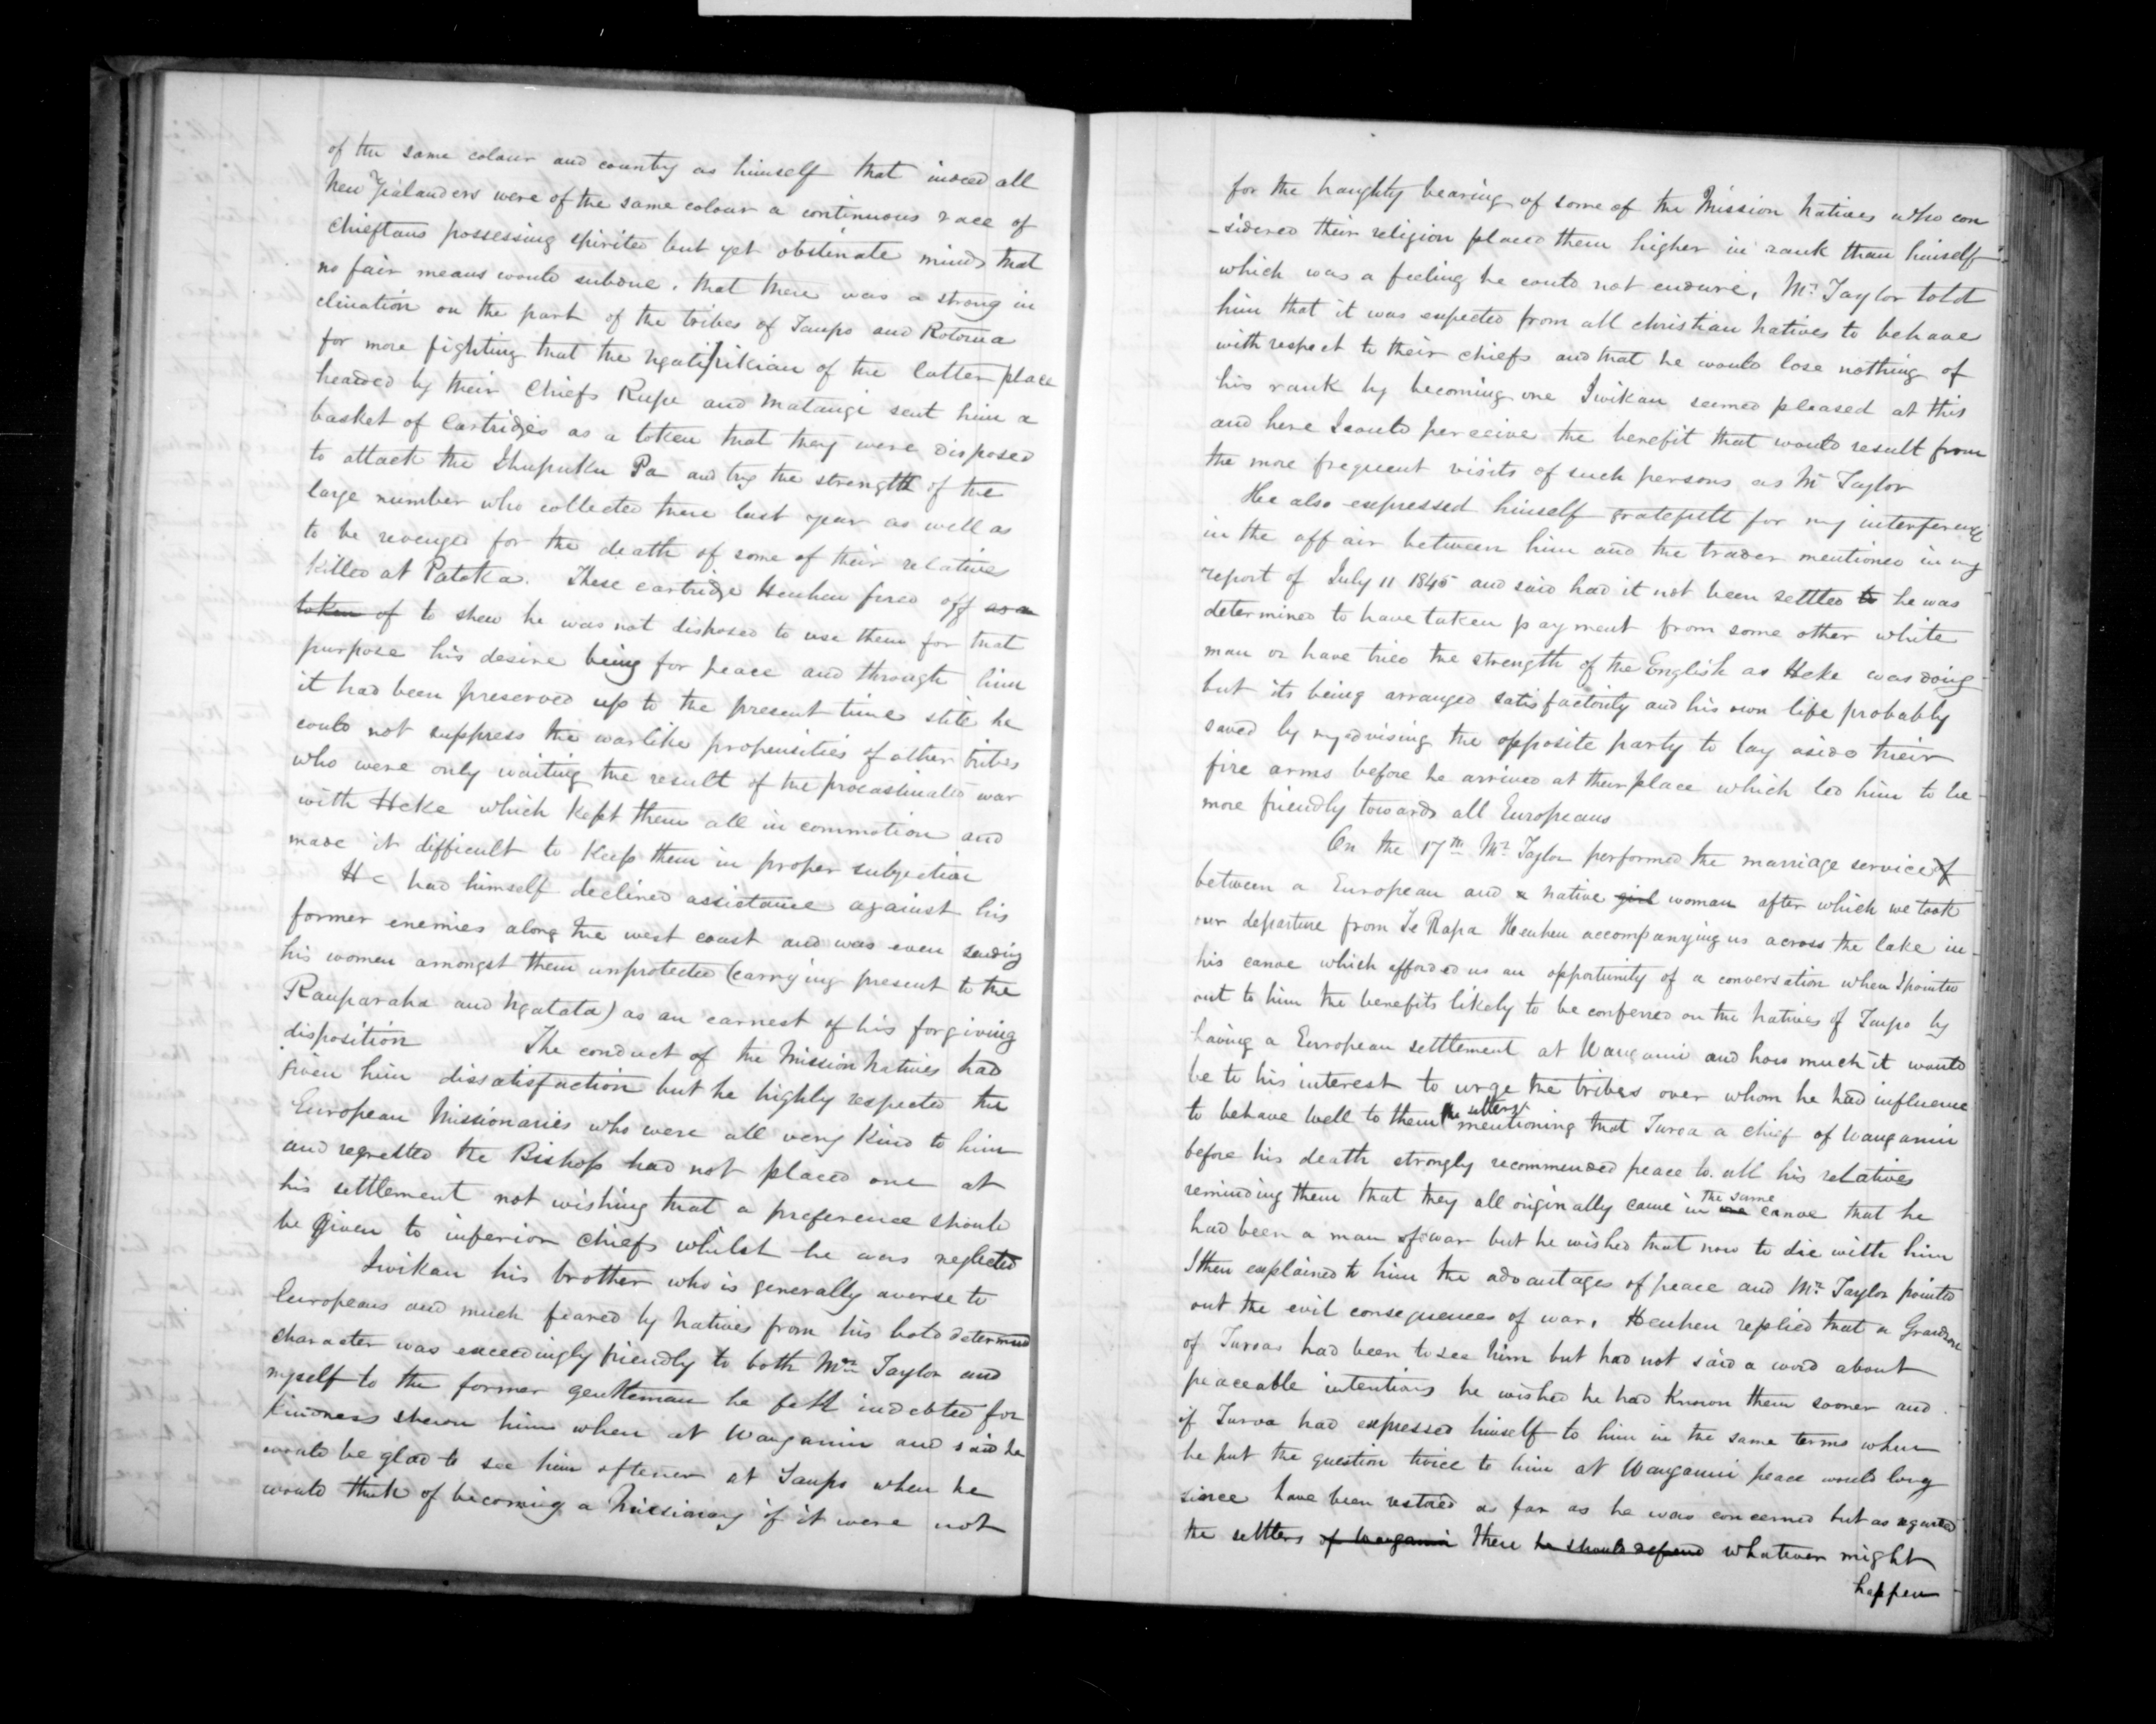 of the same colour and country as himself that indeed all
New Zealanders were of the same colour a continuous race of
Chieftans possessing spirited but yet obstinate minds that
no fair means would subdue, that there was a strong in
clination on the part of the tribes of Taupo and Rotorua
for more fighting that the Ngatipikiau of the latter place
headed by their Chiefs Rupe and Matangi sent him a
basket of Cartridges as a token that they were disposed
to attack the Ihupuku Pa and try the strength of the
large number who collected there last year as well as
to be revenged for the death of some of their relatives
killed at Patoka. These cartridge Heuheu fired off as a
token of to shew he was not disposed to use them for that
purpose his desire being for peace and through him
it had been preserved up to the present time still he
could not suppress the warlike propensities of other tribes
who were only waiting the result of the procastinated war
with Heke which kept them all in commotion and
made it difficult to keep them in proper subjection
He had himself declined assistance against his
former enemies along the west coast and was even sending
his women amongst them unprotected (carrying present to the
Rauparaha and Ngatata) as an earnest of his forgiving
disposition The conduct of the Mission Natives had
given him dissatisfaction but he highly respected the
European Missionaries who were all very kind to him
and regretted the Bishop had not placed one at
his settlement not wishing that a preference should
be given to inferior chiefs whilst he was neglected
Iwikau his brother who is generally averse to
Europeans and much feared by Natives from his bold determined
character was exceedingly friendly to both Mr Taylor and
myself to the former gentleman he felt indebted for
kindness shewn him when at Wanganui and said he
would be glad to see him oftener at Taupo when he
would think of becoming a Missionary if it were not
for the haughty bearing of some of the Mission Natives who con
-sidered their religion placed them higher in rank than himself
which was a feeling he could not endure, Mr Taylor told
him that it was expected from all christian Natives to behave
with respect to their chiefs and that he would lose nothing of
his rank by becoming one Iwikau seemed pleased at this
and here I could perceive the benefit that would result from
the more frequent visits of such persons as Mr Taylor
He also expressed himself gratefull for my interference
in the affair between him and the trader mentioned in my
report of July 11 1845 and said had it not been settled to he was
determined to have taken payment from some other white
man or have tried the strength of the English as Heke was doing
but its being arranged satisfactorily and his own life probably
saved by my advising the opposite party to lay aside their
fire arms before he arrived at their place which led him to be
more friendly towards all Europeans
On the 17th Mr Taylor performed the marriage service of
between a European and a native girl woman after which we took
our departure from Te Rapa Heuheu accompanying us across the lake in
his canoe which afforded us an opportunity of a conversation when I pointed
out to him the benefits likely to be conferred on the Natives of Taupo by
having a European settlement at Wanganui and how much it would
be to his interest to urge the tribes over whom he had influence
to behave well to them the settlers mentioning that Turoa a chief of Wanganui
before his death strongly recommended peace to all his relatives
reminding them that they all originally came in one the same canoe that he
had been a man of war but he wished that now to die with him
I then explained to him the advantages of peace and Mr Taylor pointed
out the evil consequences of war, Heuheu replied that a Grandson
of Turoas had been to see him but had not said a word about
peaceable intentions he wished he had known them sooner and
if Turoa had expressed himself to him in the same terms when
he put the question twice to him at Wanganui peace would long
since have been restored as far as he was concerned but as regarded
the settlers of Wanganui there he should defend whatever might
happen